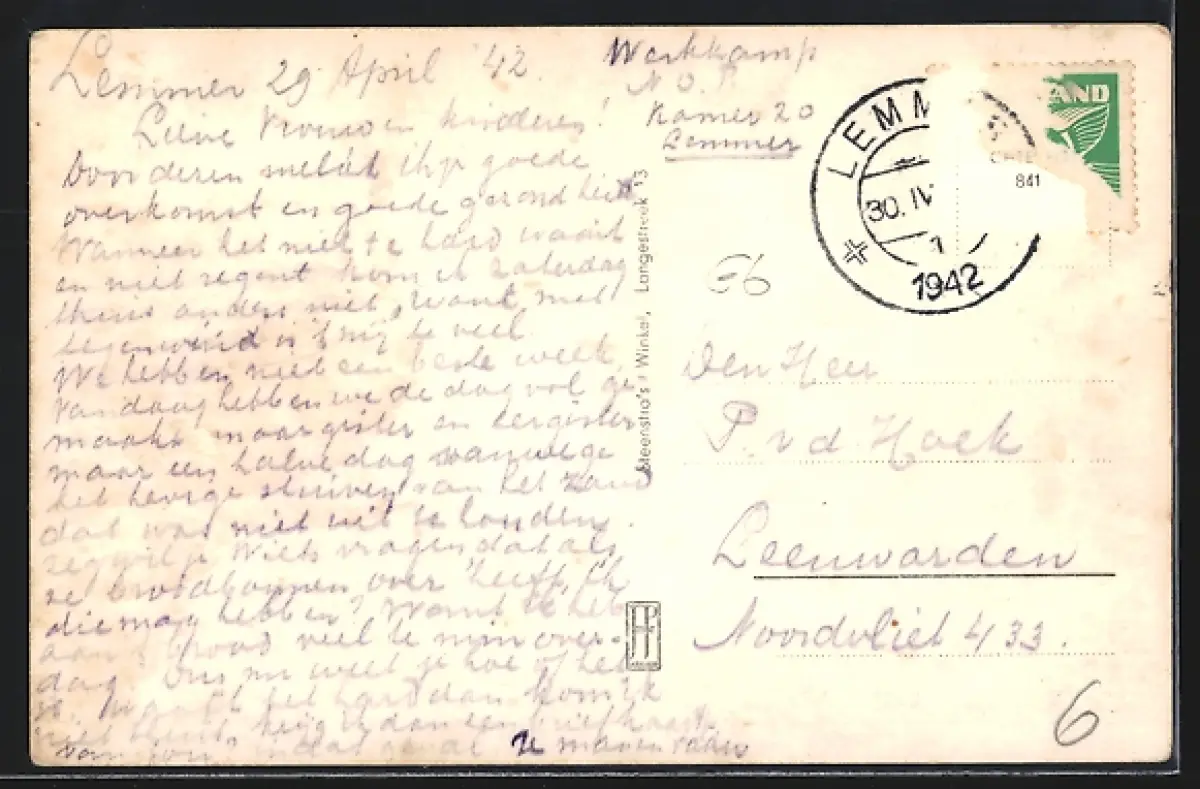 Lemmer 29 April '42.
Werkkamp
N.O.P.
Kamer 20
Lemmer
Lieve Vrouw en kinderen!
Voor deren meld ik je goede
overkomst en goede gezondheid.
Wanneer het niet te hard waait
en niet regent kom ik Zaterdag
thuis anders niet, want met
tegenwind is 't mij te veel.
We hebben niet een beste week
Vandaag hebben we de dag vol ge-
maakt maar gister en eergister
maar een halve dag vanwege
het hevige stuiven van het zand
dat was niet uit te houden.
zeg wil je Wiets vragen dat als
ze broodbonnen over heeft, ik
die mag hebben? Want ik heb
aan brood veel te min over-
dag. Dus nu weet je hoe of het
is. het hard dan kom ik
niet thuis, krijg ik dan een briefkaart
van jou, in dat geval
LEMM
30. IV
1
1942
LAND
841
Steenstra's Winkel, Langestreek 13
E6
Den Heer
P. v d Hoek
Leeuwarden
Noordvliet 433.
HF
6